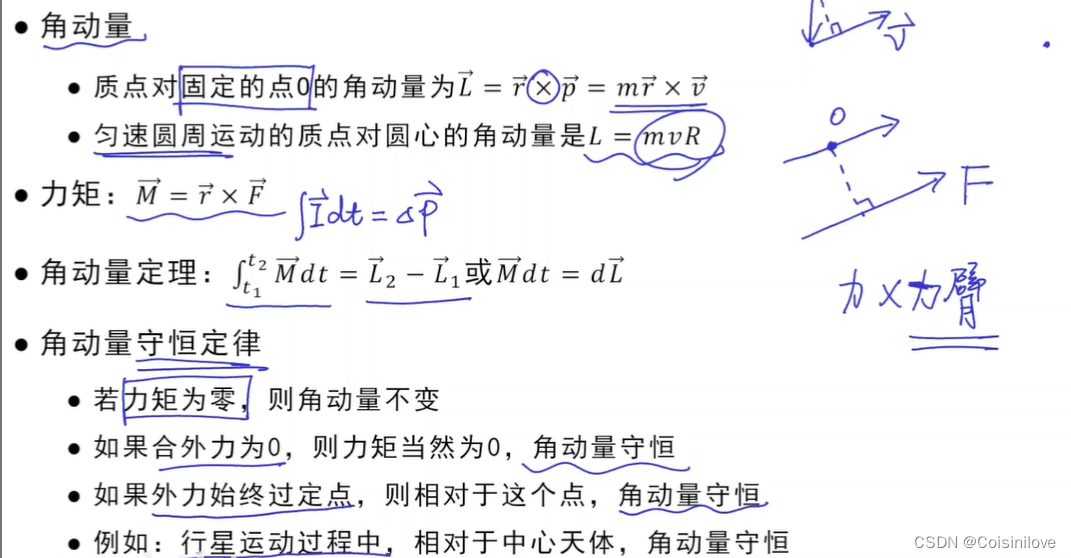 角动量
质点对固定的点O的角动量为L⃗ = r⃗ × p⃗ = mr⃗ × v⃗
匀速圆周运动的质点对圆心的角动量是L = mvR
力矩：M⃗ = r⃗ × F⃗
∫I⃗dt = △P⃗
角动量定理：∫_{t₁}^{t₂} M⃗dt = L⃗₂ − L⃗₁或M⃗dt = dL⃗
角动量守恒定律
若力矩为零，则角动量不变
如果合外力为0，则力矩当然为0，角动量守恒
如果外力始终过定点，则相对于这个点，角动量守恒
例如：行星运动过程中，相对于中心天体，角动量守恒
v⃗
O
F
力×力臂
CSDN @Coisinilove